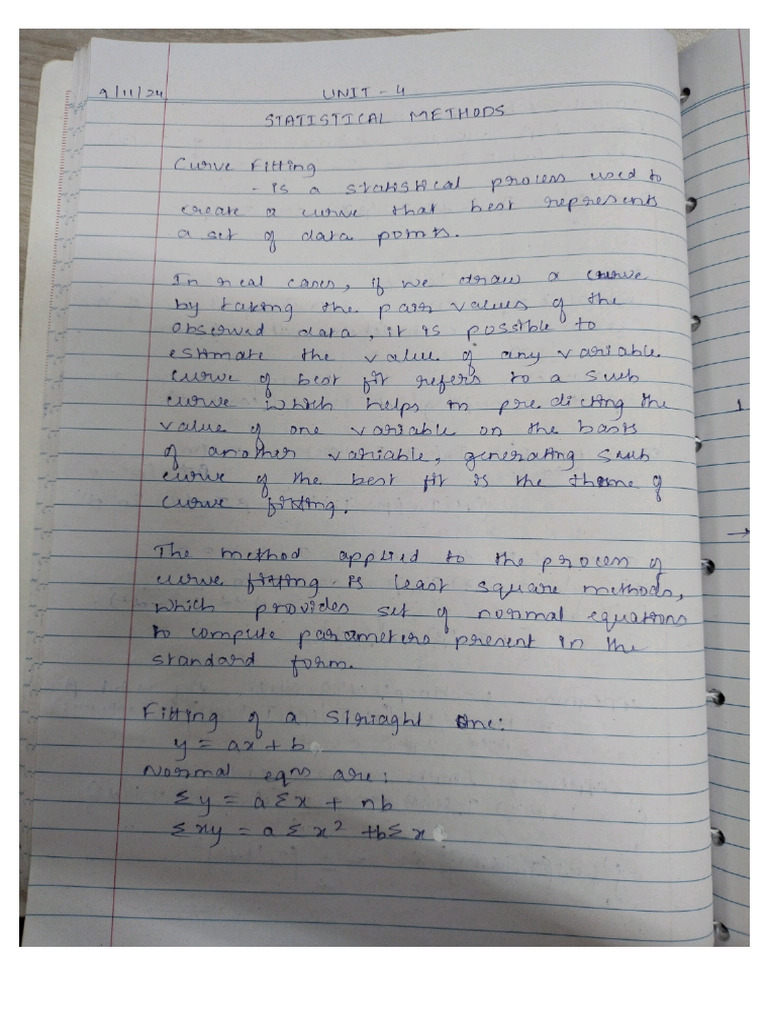 9/11/24
UNIT - 4
STATISTICAL METHODS
Curve Fitting
- is a statistical process used to
create a curve that best represents
a set of data points.
In real cases, if we draw a curve
by taking the pair values of the
observed data, it is possible to
estimate the value of any variable.
curve of best fit refers to a such
curve which helps in predicting the
value of one variable on the basis
of another variable, generating such
curve of the best fit is the theme of
curve fitting.
The method applied to the process of
curve fitting is least square methods,
which provides set of normal equations
to compute parameters present in the
standard form.
Fitting of a straight line:
y = ax + b
Normal eqns are:
Σy = aΣx + nb
Σxy = aΣx² + bΣx
1
→